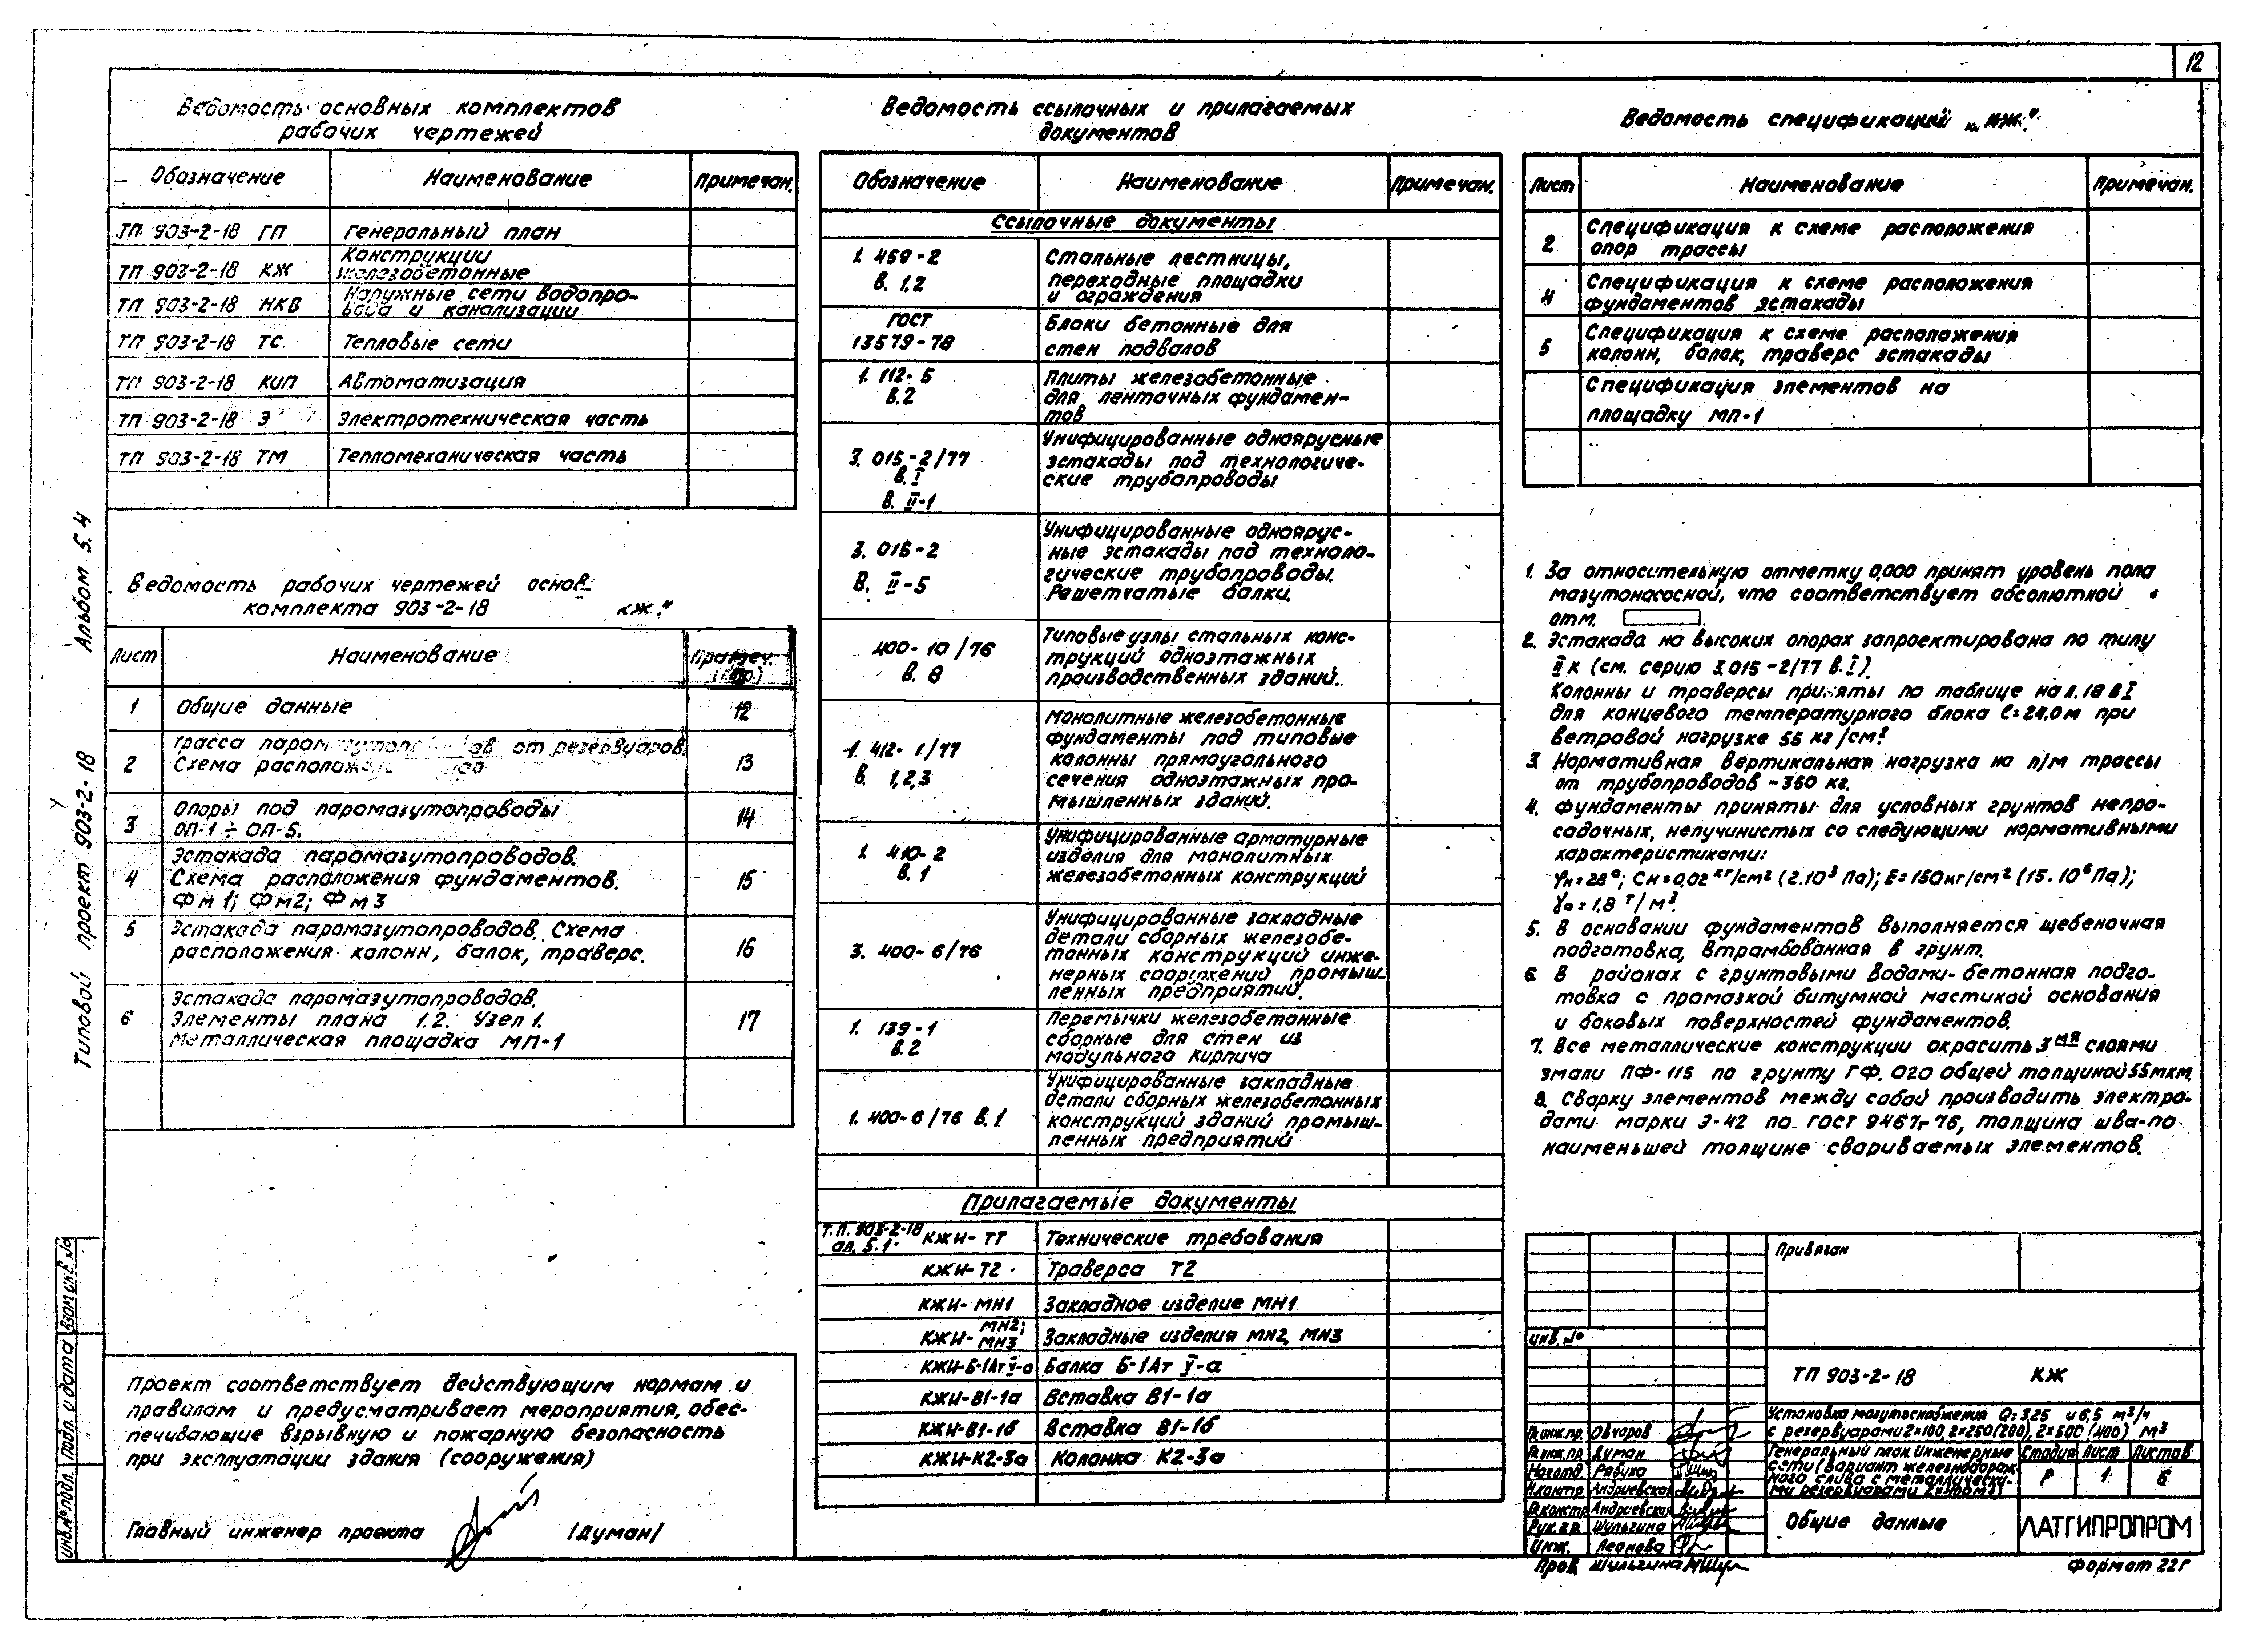 12
Ведомость основных комплектов
рабочих чертежей
Обозначение Наименование Примечан.
ТП 903-2-18 ГП Генеральный план
ТП 903-2-18 КЖ Конструкции
железобетонные
ТП 903-2-18 НКВ Наружные сети водопро-
вода и канализации
ТП 903-2-18 ТС Тепловые сети
ТП 903-2-18 КИП Автоматизация
ТП 903-2-18 Э Электротехническая часть
ТП 903-2-18 ТМ Тепломеханическая часть
Ведомость рабочих чертежей основ.
комплекта 903-2-18 КЖ."
Лист Наименование Примеч.
(стр.)
1 Общие данные 12
2 Трасса от резервуаров. 13
Схема
3 Опоры под паромазутопроводы 14
ОП-1 ÷ ОП-5.
4 Эстакада паромазутопроводов. 15
Схема расположения фундаментов.
Фм1; Фм2; Фм3
5 Эстакада паромазутопроводов. Схема 16
расположения колонн, балок, траверс.
6 Эстакада паромазутопроводов. 17
Элементы плана 1.2. Узел 1.
Металлическая площадка МП-1
Проект соответствует действующим нормам и
правилам и предусматривает мероприятия, обес-
печивающие взрывную и пожарную безопасность
при эксплуатации здания (сооружения)
Главный инженер проекта /Думан/
Ведомость ссылочных и прилагаемых
документов
Обозначение Наименование Примечан.
Ссылочные документы
1. 459-2 Стальные лестницы,
в. 1.2 переходные площадки
и ограждения
ГОСТ Блоки бетонные для
13579-78 стен подвалов
1. 112-5 Плиты железобетонные
в.2 для ленточных фундамен-
тов
3. 015-2/77 Унифицированные одноярусные
в. I эстакады под технологиче-
в. II-1 ские трубопроводы
3. 015-2 Унифицированные одноярус-
В. II-5 ные эстакады под техноло-
гические трубопроводы.
Решетчатые балки.
400-10/76 Типовые узлы стальных конс-
в. 8 трукций одноэтажных
производственных зданий.
1. 412-1/77 Монолитные железобетонные
в. 1,2,3 фундаменты под типовые
колонны прямоугольного
сечения одноэтажных про-
мышленных зданий.
1. 410-2 Унифицированные арматурные
в. 1 изделия для монолитных
железобетонных конструкций
3. 400-6/76 Унифицированные закладные
детали сборных железобе-
тонных конструкций инже-
нерных сооружений промыш-
ленных предприятий.
1. 139-1 Перемычки железобетонные
в.2 сборные для стен из
модульного кирпича
1. 400-6/76 в. 1 Унифицированные закладные
детали сборных железобетонных
конструкций зданий промыш-
ленных предприятий
Прилагаемые документы
Т.П. 903-2-18
ал. 5.1 КЖИ-ТТ Технические требования
КЖИ-Т2 Траверса Т2
КЖИ-МН1 Закладное изделие МН1
КЖИ-МН2; МН3 Закладные изделия МН2, МН3
КЖИ-Б-1Ат V-а Балка Б-1Ат V-а
КЖИ-В1-1а Вставка В1-1а
КЖИ-В1-1б Вставка В1-1б
КЖИ-К2-3а Колонка К2-3а
Ведомость спецификаций „КЖ."
Лист Наименование Примечан.
2 Спецификация к схеме расположения
опор трассы
4 Спецификация к схеме расположения
фундаментов эстакады
5 Спецификация к схеме расположения
колонн, балок, траверс эстакады
Спецификация элементов на
площадку МП-1
1. За относительную отметку 0,000 принят уровень пола
мазутонасосной, что соответствует абсолютной
отм.
2. Эстакада на высоких опорах запроектирована по типу
II К (см. серию 3.015-2/77 в. I).
Колонны и траверсы приняты по таблице на л. 18 в I
для концевого температурного блока ℓ=24,0м при
ветровой нагрузке 55 кг/см²
3. Нормативная вертикальная нагрузка на п/м трассы
от трубопроводов - 350 кг.
4. Фундаменты приняты для условных грунтов непро-
садочных, непучинистых со следующими нормативными
характеристиками:
φн=28°; Сн=0,02 кг/см² (2.10³ Па); Е=150кг/см² (15.10⁶ Па);
γо=1,8 т/м³.
5. В основании фундаментов выполняется щебеночная
подготовка, втрамбованная в грунт.
6. В районах с грунтовыми водами-бетонная подго-
товка с промазкой битумной мастикой основания
и боковых поверхностей фундаментов.
7. Все металлические конструкции окрасить 3мя слоями
эмали ПФ-115 по грунту ГФ. 020 общей толщиной 55мкм.
8. Сварку элементов между собой производить электро-
дами марки Э-42 по ГОСТ 9467-76, толщина шва-по
наименьшей толщине свариваемых элементов.
Привязан
инв. №
ТП 903-2-18 КЖ
Установка мазутоснабжения Q=3,25 и 6,5 м³/ч
с резервуарами 2×100, 2×250(200), 2×500 (400) м³
Гл.инж.пр. Овчаров
Гл.инж.пр. Думан
Нач.отд. Рябуха
Н.контр. Андриевская
Гл.констр. Андриевская
Рук.гр. Шульгина
Инж. Леонова
Пров. Шульгина
Генеральный план. Инженерные
сети (вариант железнодорож-
ного слива с металлически-
ми резервуарами
Стадия Лист Листов
Р 1 6
Общие данные
ЛАТГИПРОПРОМ
Формат 22г
Типовой проект 903-2-18 Альбом 5.4
Инв.№ подл. Подп. и дата Взам.инв.№